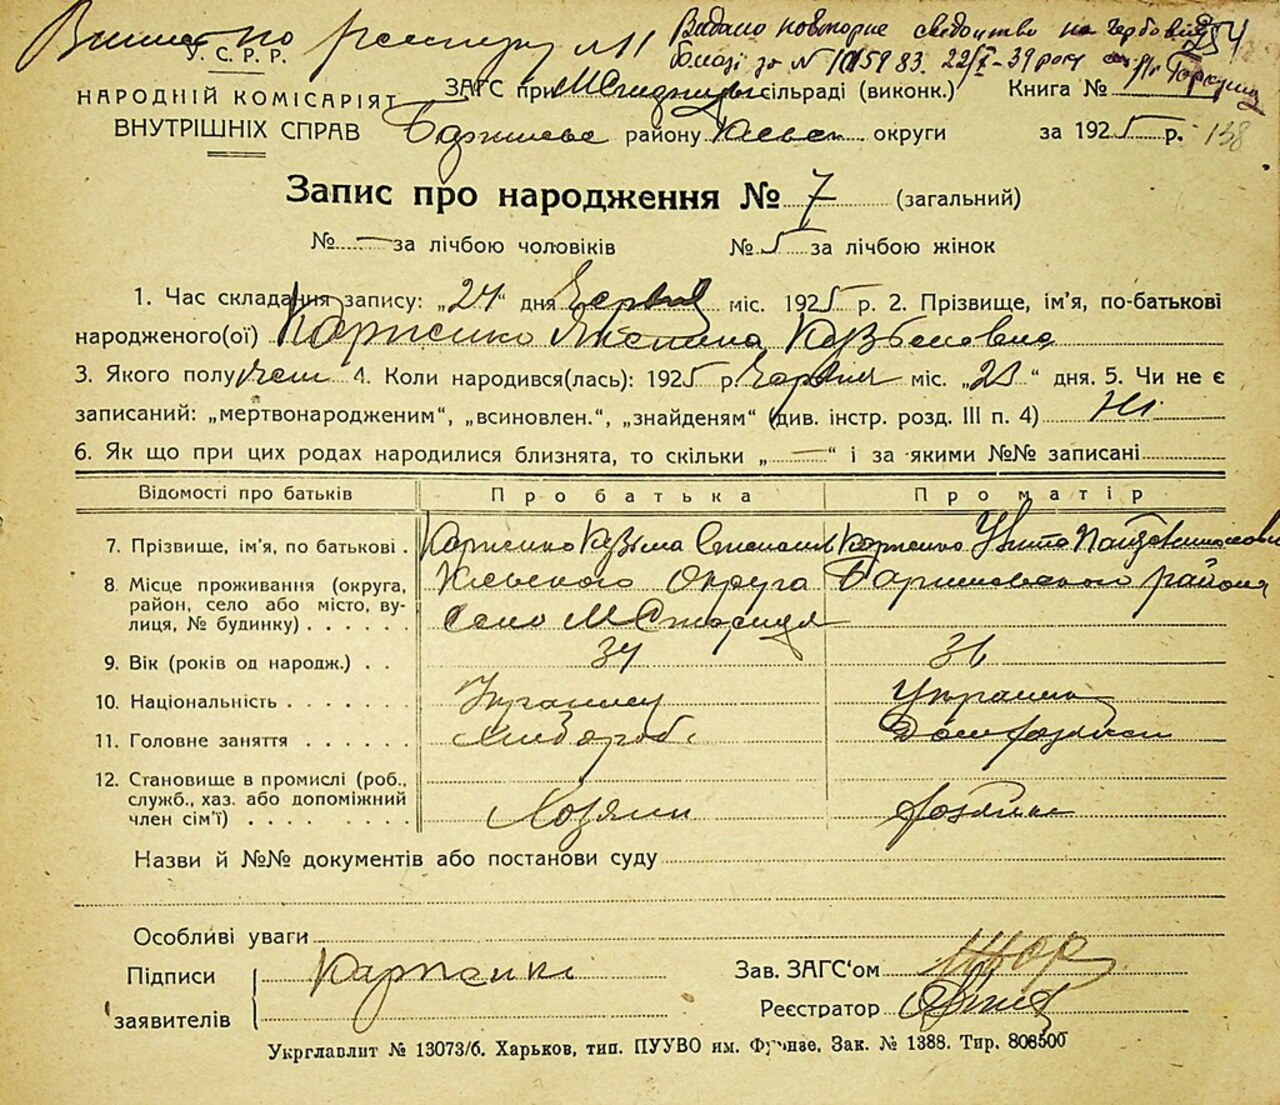 Видано повторне свідоцтво на гербовій 254
по реєстру №11 блазі за № 1015983. 22/V-39 року
У. С. Р. Р.
НАРОДНІЙ КОМІСАРІЯТ
ВНУТРІШНІХ СПРАВ
ЗАГС при сільраді (виконк.) Книга №
району Київськ округи за 1925 р. 138
Запис про народження № 7 (загальний)
№ — за лічбою чоловіків № 5 за лічбою жінок
1. Час складання запису: „24“ дня Червня міс. 1925 р. 2. Прізвище, ім'я, по-батькові
народженого(ої) Карпенко Кузьмовна
3. Якого полу жен 4. Коли народився(лась): 1925 р. Червня міс. „21“ дня. 5. Чи не є
записаний: „мертвонародженим“, „всиновлен.“, „знайденям“ (див. інстр. розд. III п. 4) Ні
6. Як що при цих родах народилися близнята, то скільки „—“ і за якими №№ записані
Відомості про батьків Про батька Про матір
7. Прізвище, ім'я, по батькові. Карпенко Кузьма Степанов Карпенко
8. Місце проживання (округа, район, село або місто, вулиця, № будинку) Київського Округа Баришовського района
село М Стариця
9. Вік (років од народж.) 34 31
10. Національність Украинец Украинка
11. Головне заняття Хлібороб. Домохазяйка
12. Становище в промислі (роб., служб., хаз. або допоміжний член сім'ї) Хозяин Хозяйка
Назви й №№ документів або постанови суду
Особливі уваги
Підписи заявителів Карпенко
Зав. ЗАГС'ом
Реєстратор
Укрглавлит № 13073/б. Харьков, тип. ПУУВО им. Фрунзе. Зак. № 1388. Тир. 808500